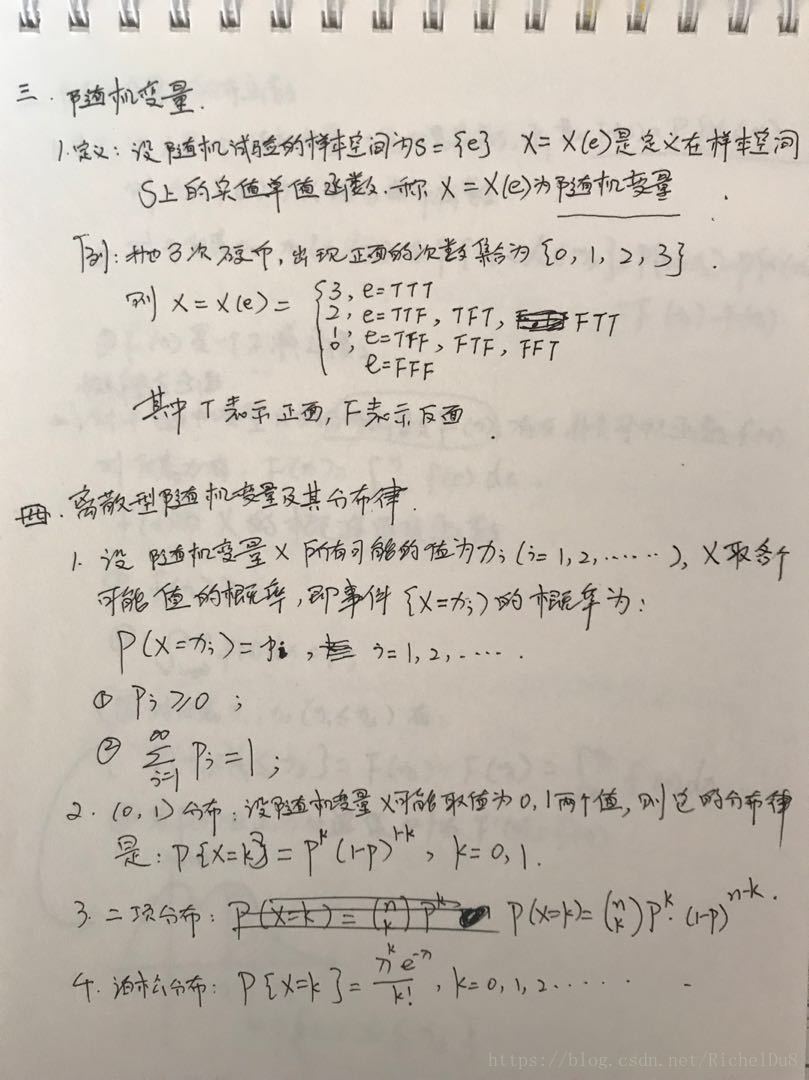 三．随机变量．
1.定义：设随机试验的样本空间为S={e} X=X(e)是定义在样本空间
S上的实值单值函数．称 X=X(e)为随机变量．
例：抛3次硬币，出现正面的次数集合为{0, 1, 2, 3}．
则 X=X(e)= { 3, e=TTT
2, e=TTF, TFT, FTT
1, e=TFF, FTF, FFT
0, e=FFF
其中T表示正面，F表示反面．
四．离散型随机变量及其分布律．
1. 设随机变量X所有可能的值为xi (i=1,2,……), X取各个
可能值的概率，即事件{X=xi)的概率为：
P(X=xi)=pi, i=1,2,…．
① Pi≥0；
② ∑_{i=1}^{∞} Pi=1；
2. (0,1)分布：设随机变量X可能取值为0,1两个值，则它的分布律
是：P{X=k}=p^k (1-p)^{1-k}, k=0,1.
3. 二项分布： P(X=k)=(n k) P^k·(1-p)^{n-k}.
4. 泊松分布：P{X=k}=λ^k e^{-λ}/k!, k=0,1,2……
https://blog.csdn.net/RichelDu8